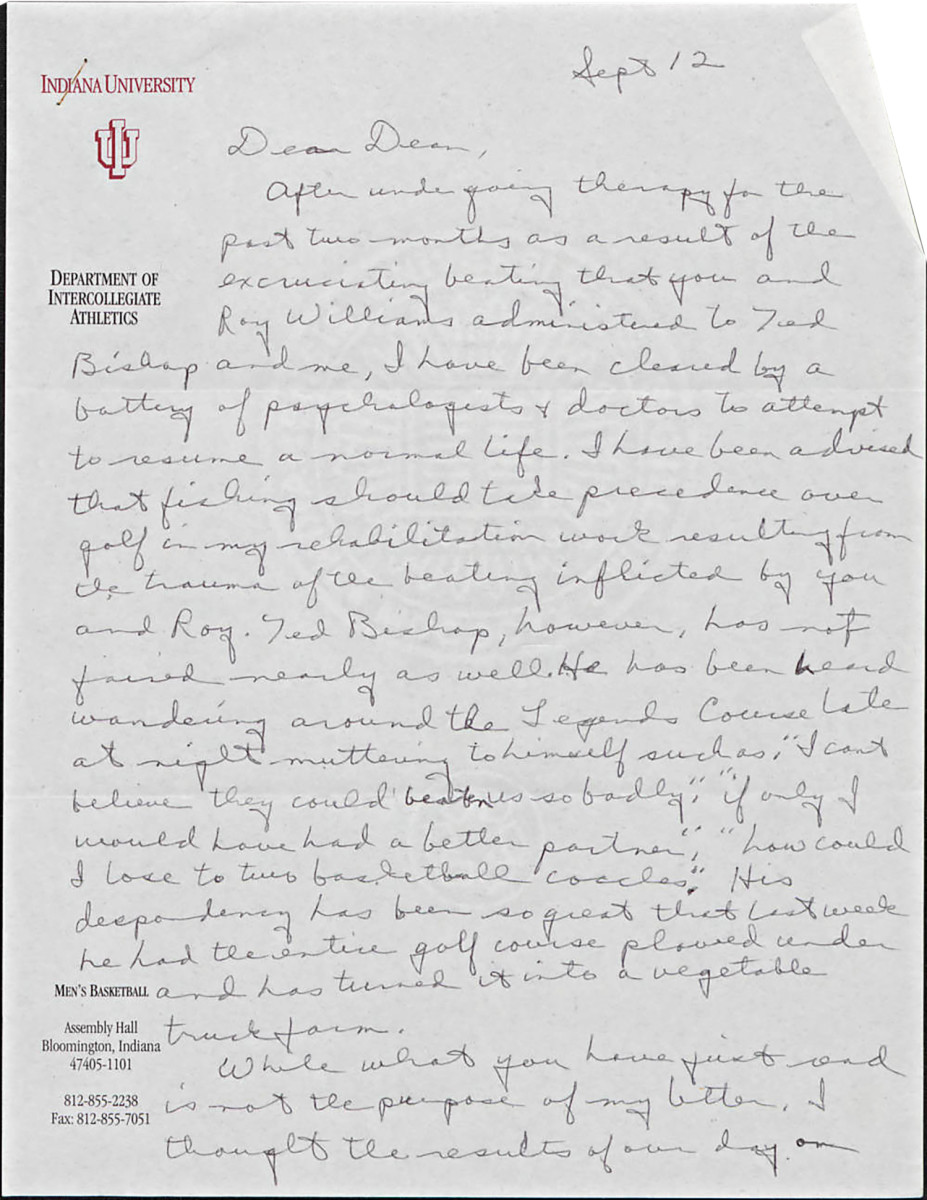 Sept 12
INDIANA UNIVERSITY
IU
Dear Dean,
After undergoing therapy for the
past two months as a result of the
excruciating beating that you and
DEPARTMENT OF
INTERCOLLEGIATE
ATHLETICS
Roy Williams administered to Ted
Bishop and me, I have been cleared by a
battery of psychologists & doctors to attempt
to resume a normal life. I have been advised
that fishing should take precedence over
golf in my rehabilitation work resulting from
the trauma of the beating inflicted by you
and Roy. Ted Bishop, however, has not
faired nearly as well. He has been heard
wandering around the Legends Course late
at night muttering to himself such as, "I cant
believe they could beaten us so badly", "if only I
would have had a better partner", "how could
I lose to two basketball coaches". His
despondency has been so great that last week
he had the entire golf course plowed under
and has turned it into a vegetable
MEN'S BASKETBALL
truck farm.
Assembly Hall
Bloomington, Indiana
47405-1101
While what you have just read
812-855-2238
Fax: 812-855-7051
is not the purpose of my letter, I
thought the results of our day on